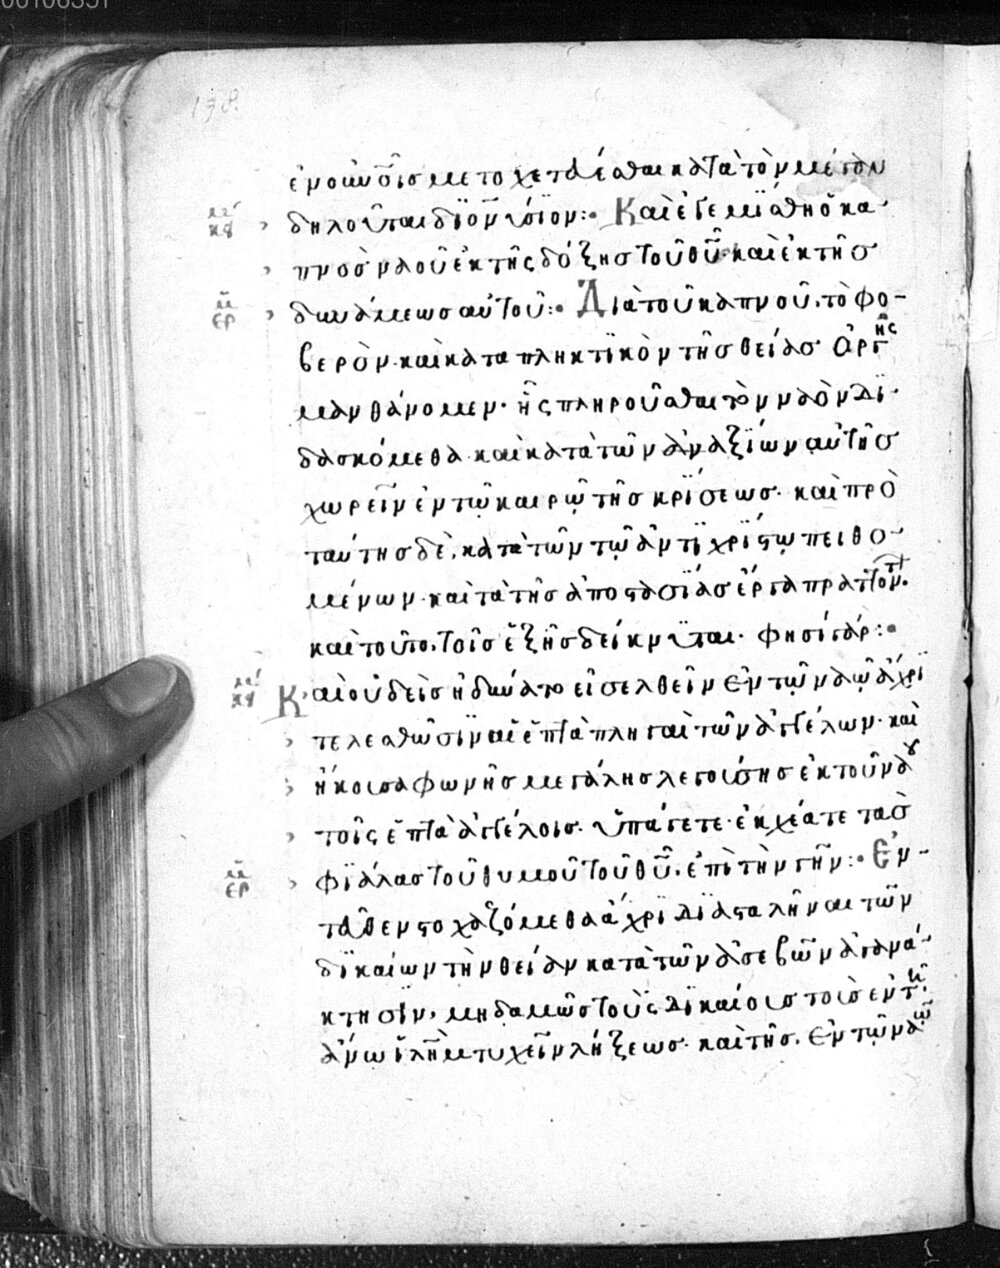 00106351
198.
ἐνοικήσει μετοχετεύεσθαι κατὰ τὸν μέγαν
κεί
κυ δηλοῦται διονύσιον:· Καὶ ἐγεμίσθη ὁ κα-
πνοσ ναοῦ ἐκ τῆς δόξησ τοῦ θῦ· καὶ ἐκ τῆσ
ἑρ δυνάμεωσ αὐτοῦ:· Διὰ τοῦ καπνοῦ, τὸ φο-
βερὸν· καὶ καταπληκτϊκὸν τῆσ θείασ ὀργῆς
μανθάνομεν· ἧς πληροῦσθαι τὸν ναὸν δϊ-
δασκόμεθα· καὶ κατὰ τῶν ἀναξϊων αὐτῆσ
χωρεῖν ἐν τῷ καιρῷ τῆσ κρϊσεωσ· καὶ πρὸ
ταύτησ δὲ, κατὰ τῶν τῷ ἀντϊχρϊστῳ πειθο-
μένων· καὶ τὰ τῆσ ἀποστασϊασ ἔργα πραττόντων·
καὶ τοῦτο, τοῖσ ἑξῆσ δείκνυται· φησί γάρ:·
κεί
κυ Καὶ οὐδεὶσ ἠδύνατο εἰσελθεῖν ἐν τῷ ναῷ ἄχρϊ
τελεσθῶσϊν αἱ ἑπτὰ πληγαὶ τῶν ἀγγέλων· καὶ
ἤκουσα φωνῆσ μεγάλησ λεγούσησ ἐκ τοῦ ναοῦ
τοῖς ἑπτὰ ἀγγέλοισ· ὑπάγετε· ἐκχέατε τασ
φϊάλασ τοῦ θυμοῦ τοῦ θῦ, ἐπὶ τὴν γῆν:· Ἐν-
ἑρ
τεῦθεν στοχαζόμεθα ἄχρϊ δϊασταλῆναι τῶν
δϊκαίων τὴν θείαν κατὰ τῶν ἀσεβῶν ἀγανά-
κτησϊν, μηδαμῶσ τοὺς δϊκαίουσ τοισ ἐν τῇ
ἄνω ϊλῆμ τυχεῖν λήξεωσ· καὶ τῆσ, ἐν τῷ ναῷ